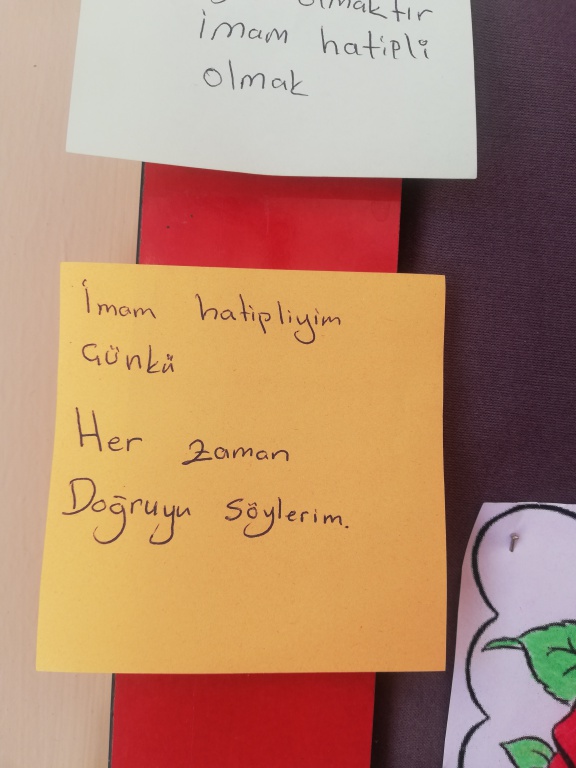 olmaktır
imam hatipli
olmak
İmam hatipliyim
Günkü
Her zaman
Doğruyu söylerim.